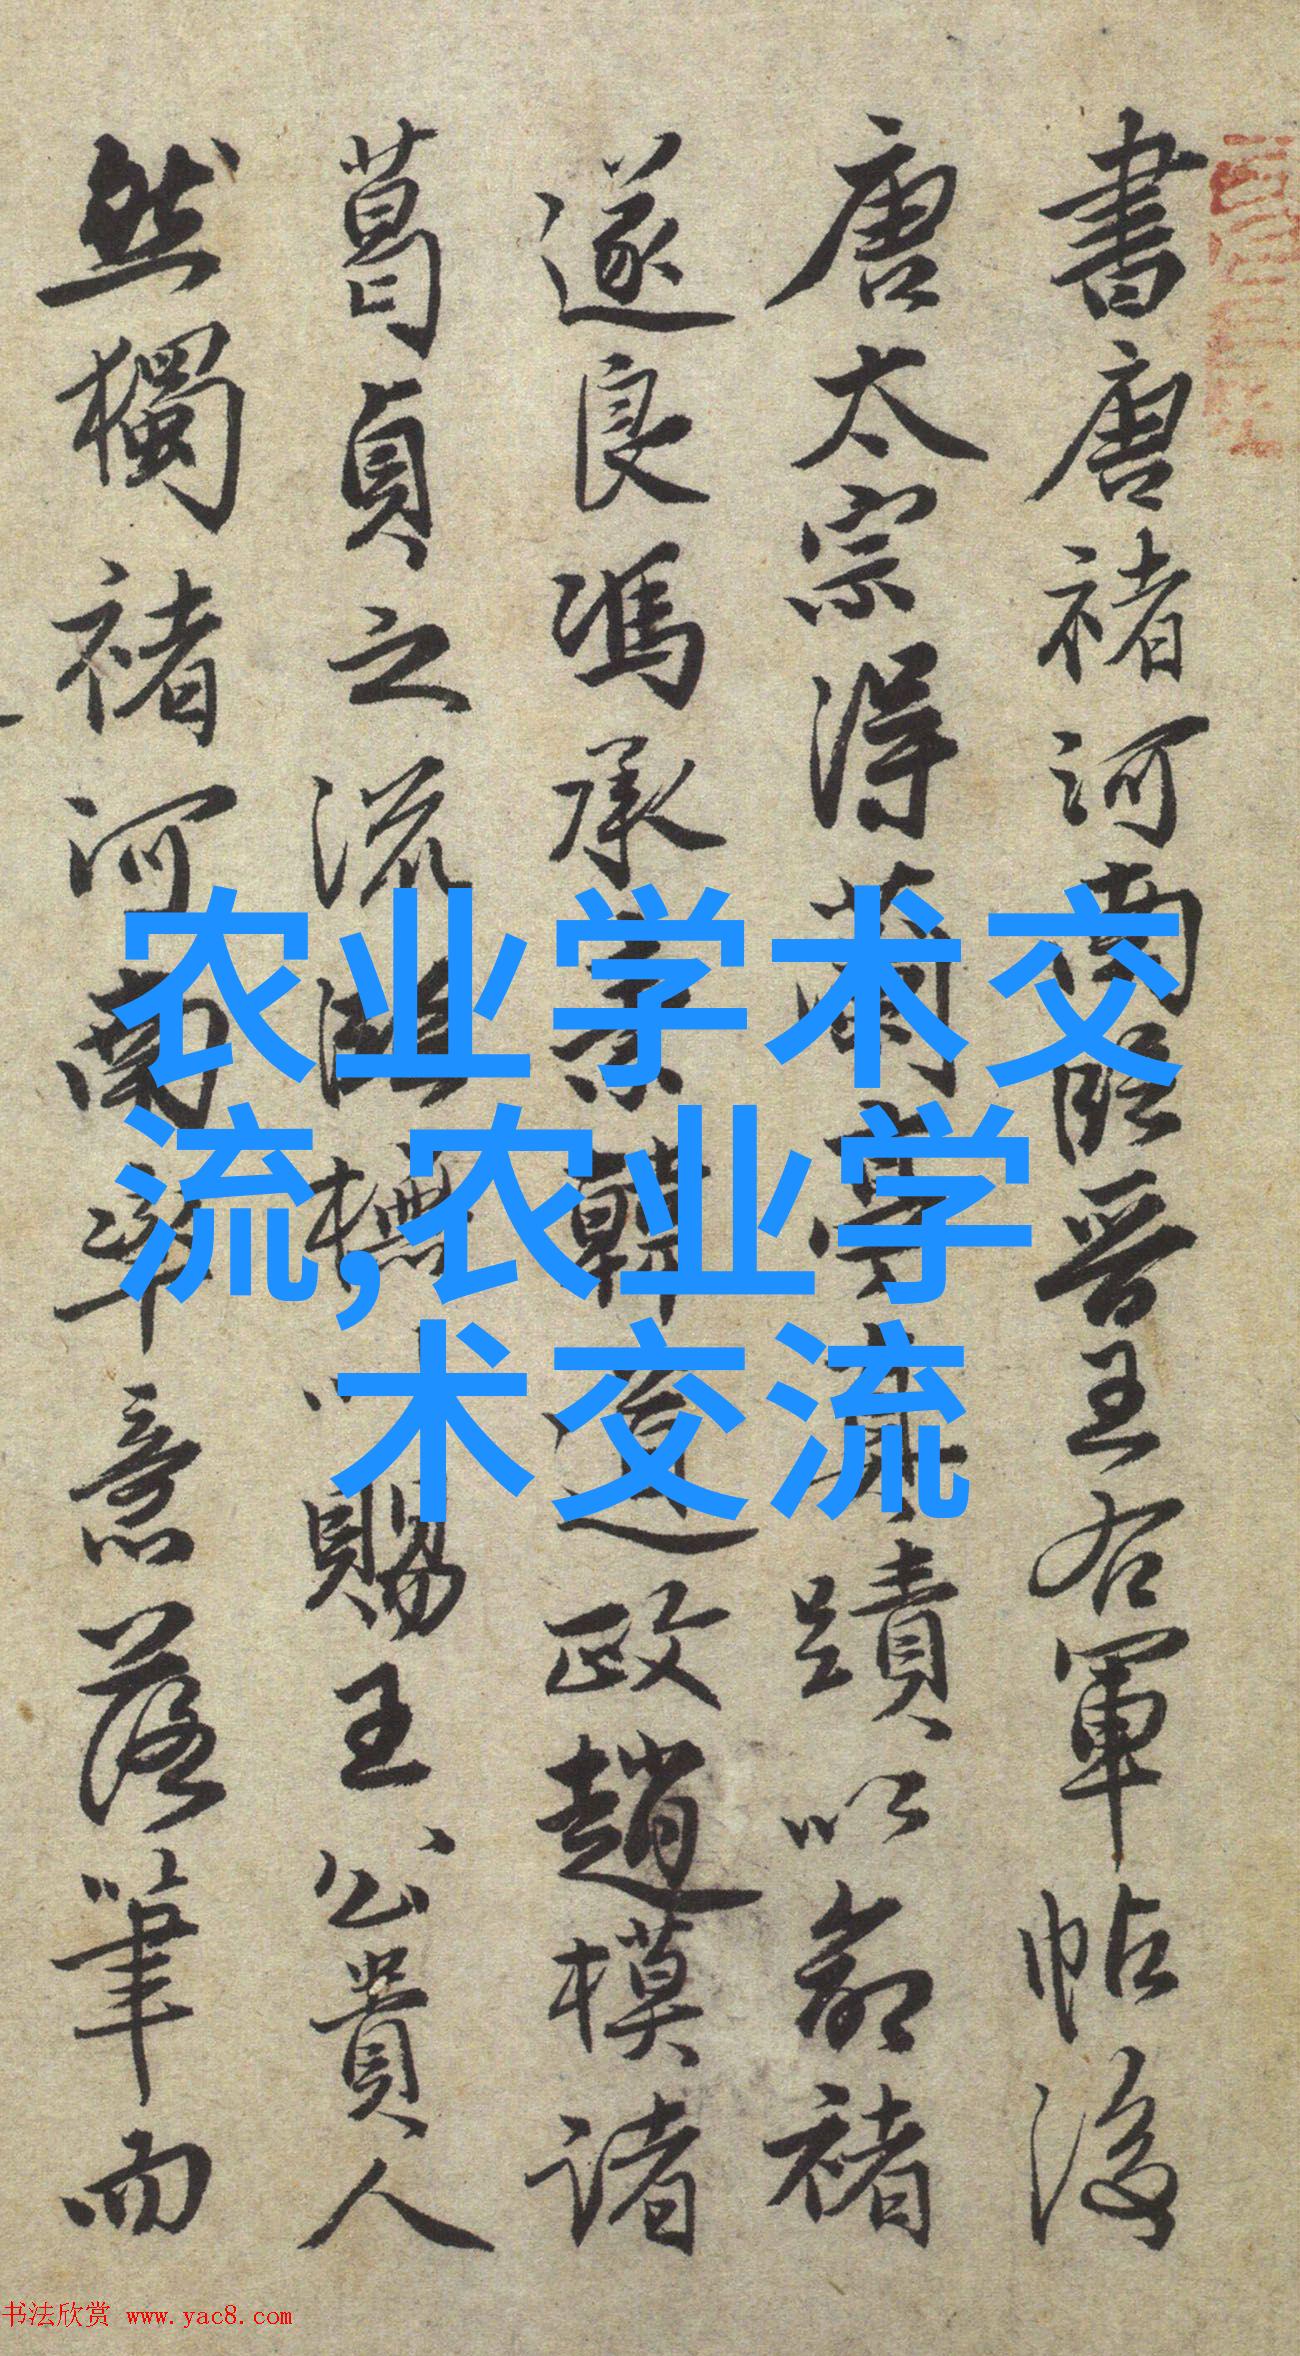 書唐褚河南臨晉王右軍帖後
唐太宗得蘭亭真蹟以命褚
遂良馮承素韓道政趙模諸
葛貞之流臨橅以賜王公貴人
然獨褚河南率意落筆而
农业学术交
流,农业学
术交流
书法欣赏 www.yac8.com